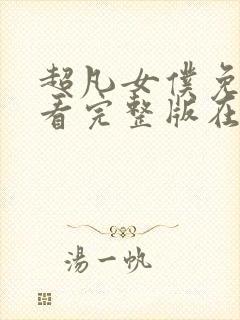 超凡女僕免
看完整版在
湯一帆